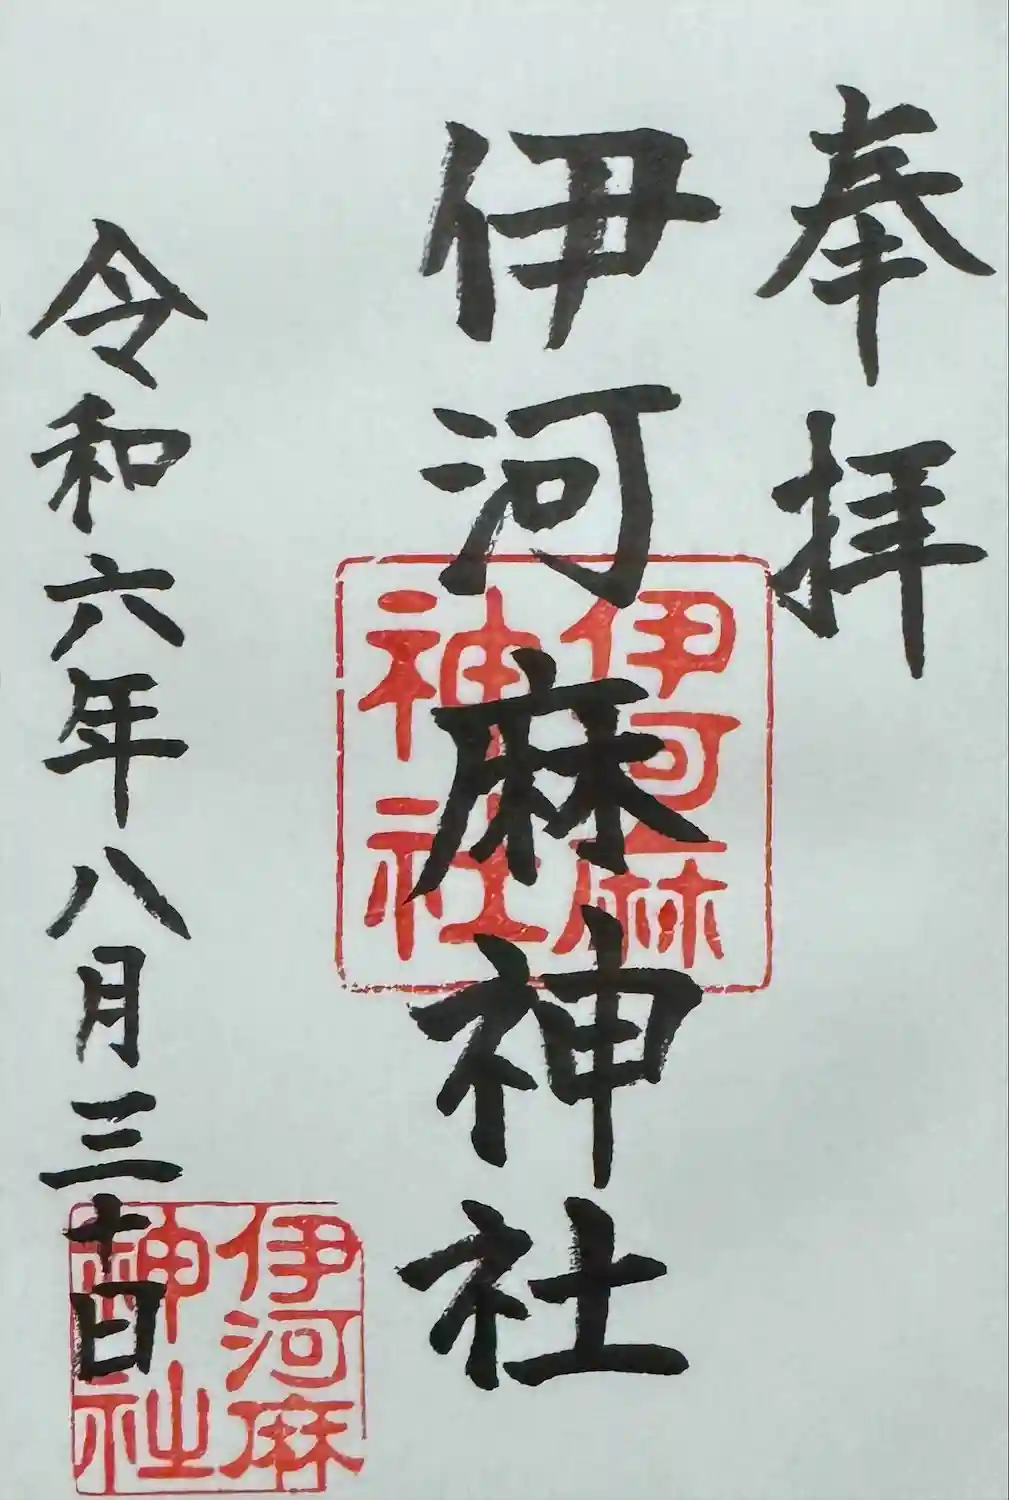 奉拝
伊河麻神社
令和六年八月三十日
伊河麻
神社
伊河麻
神社